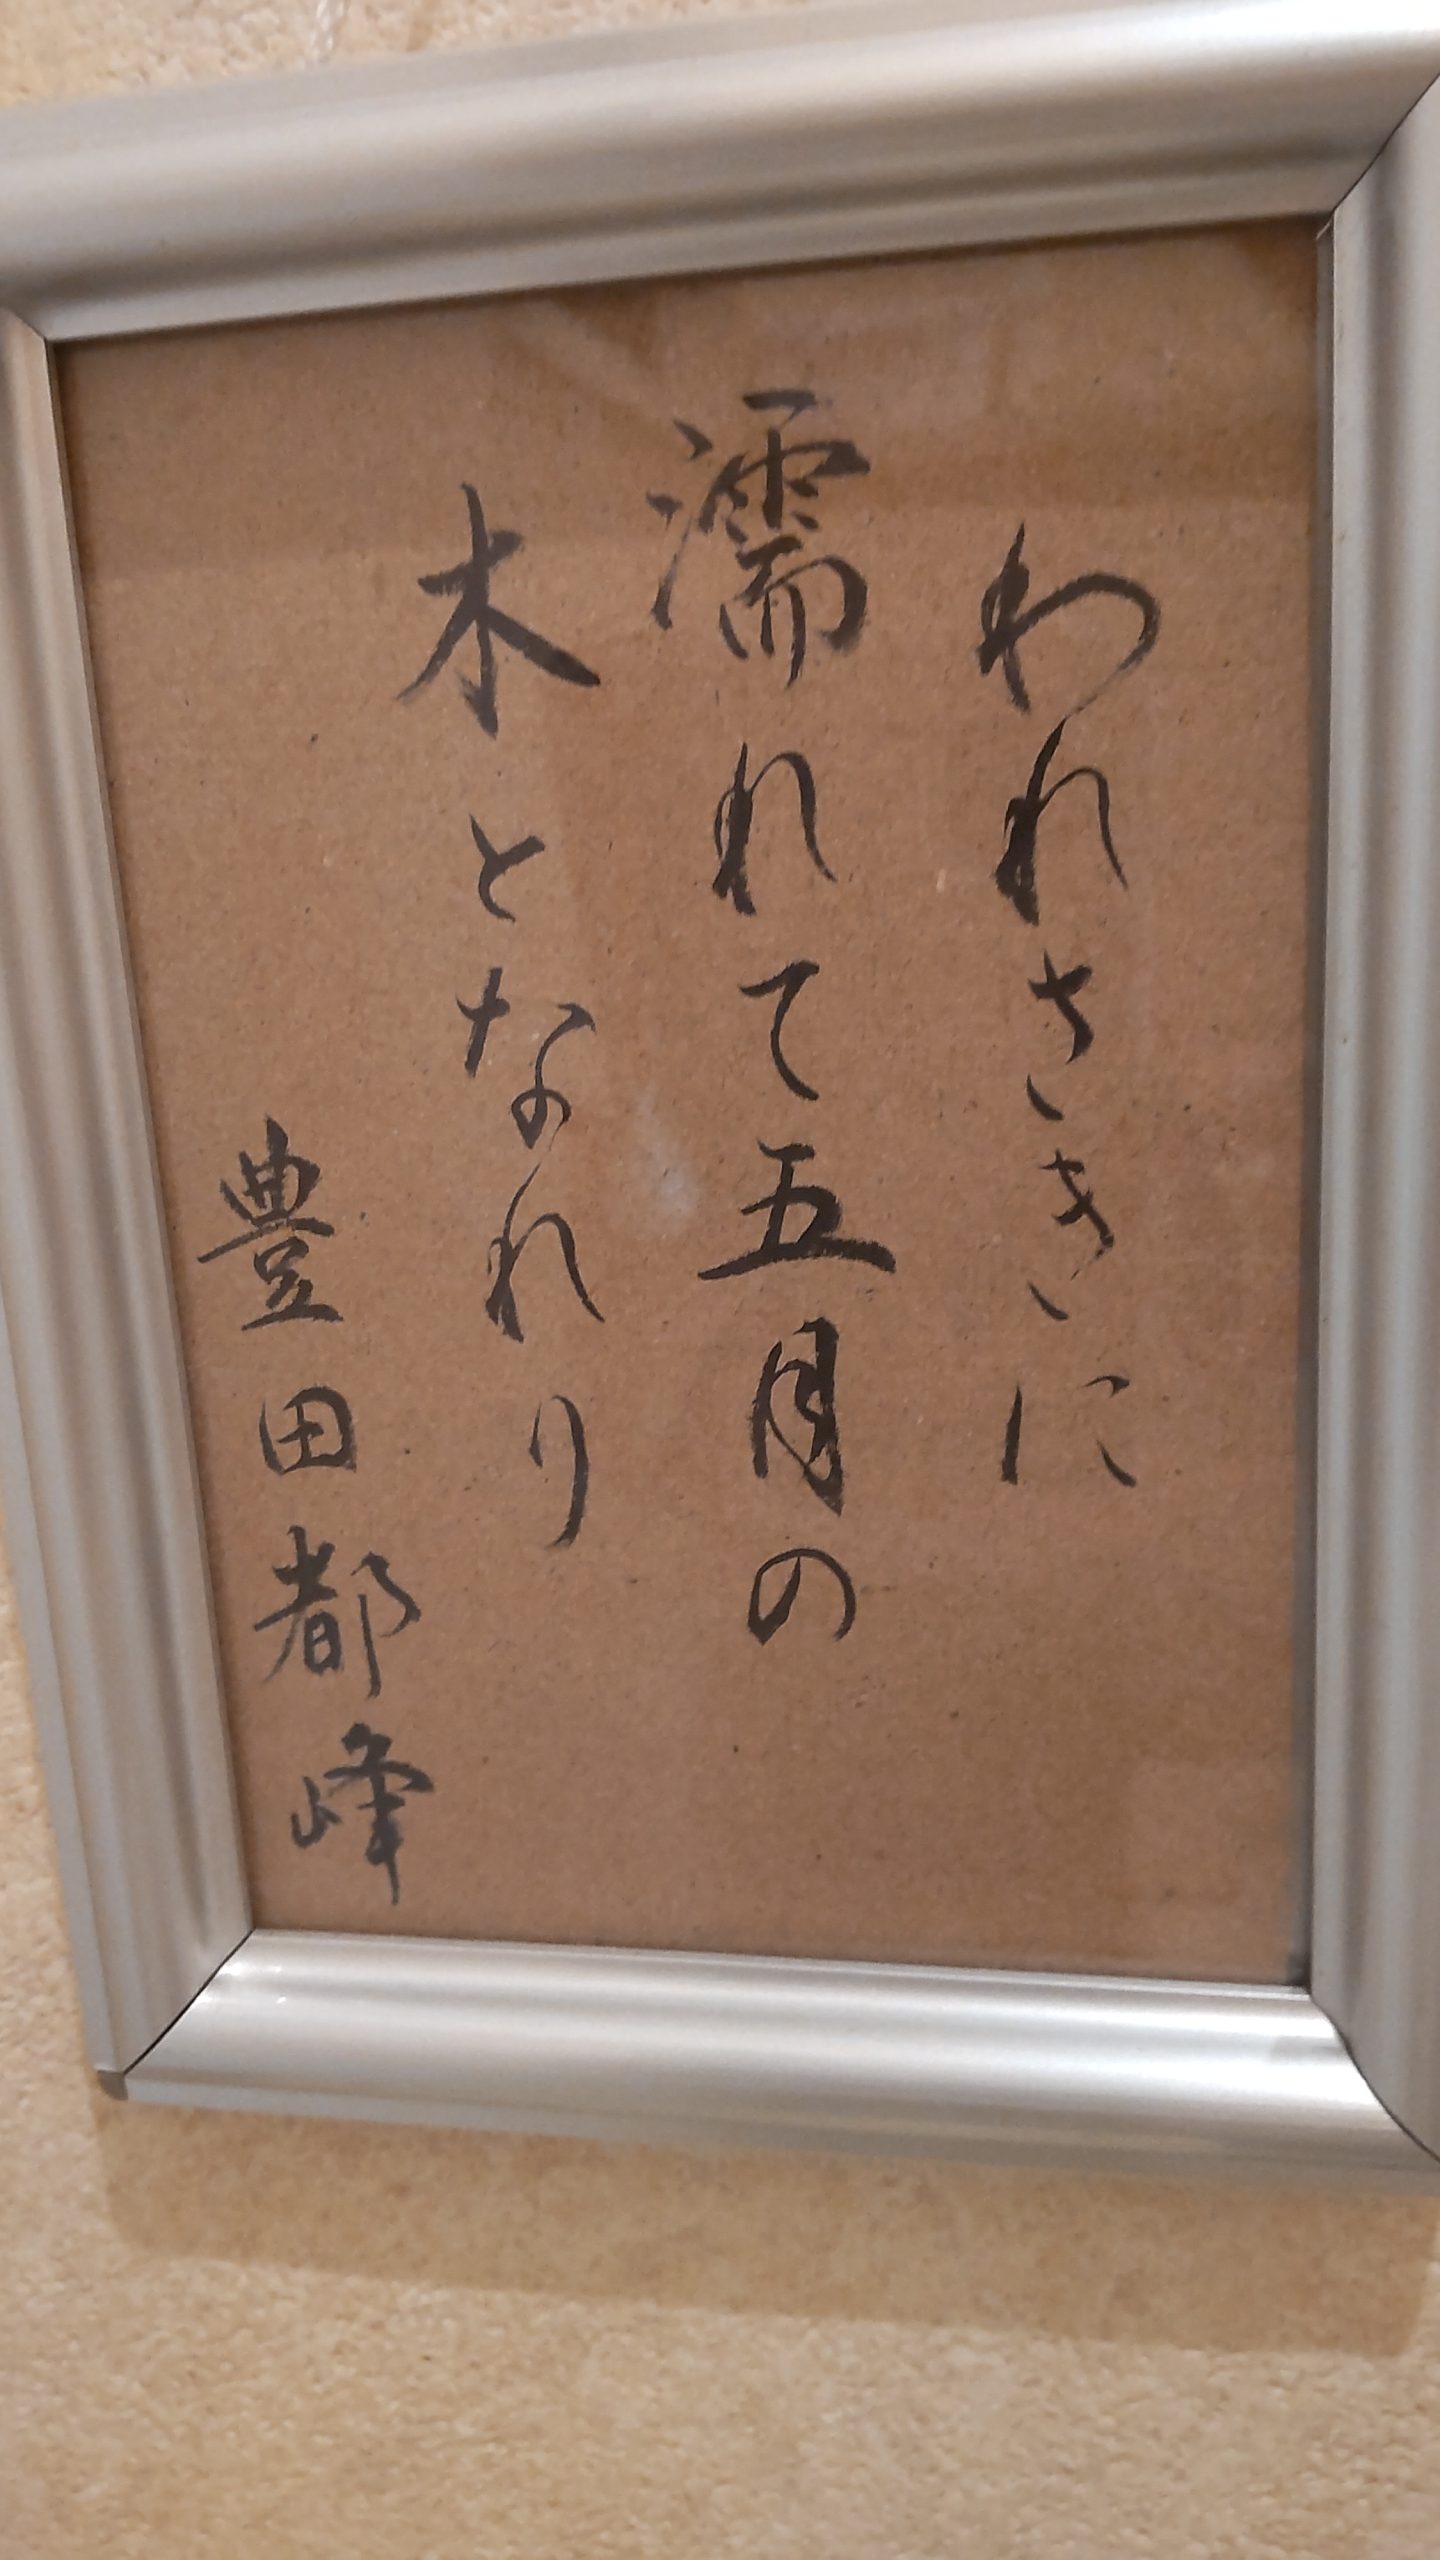 われさきに
濡れて五月の
木となれり
豊田都峰